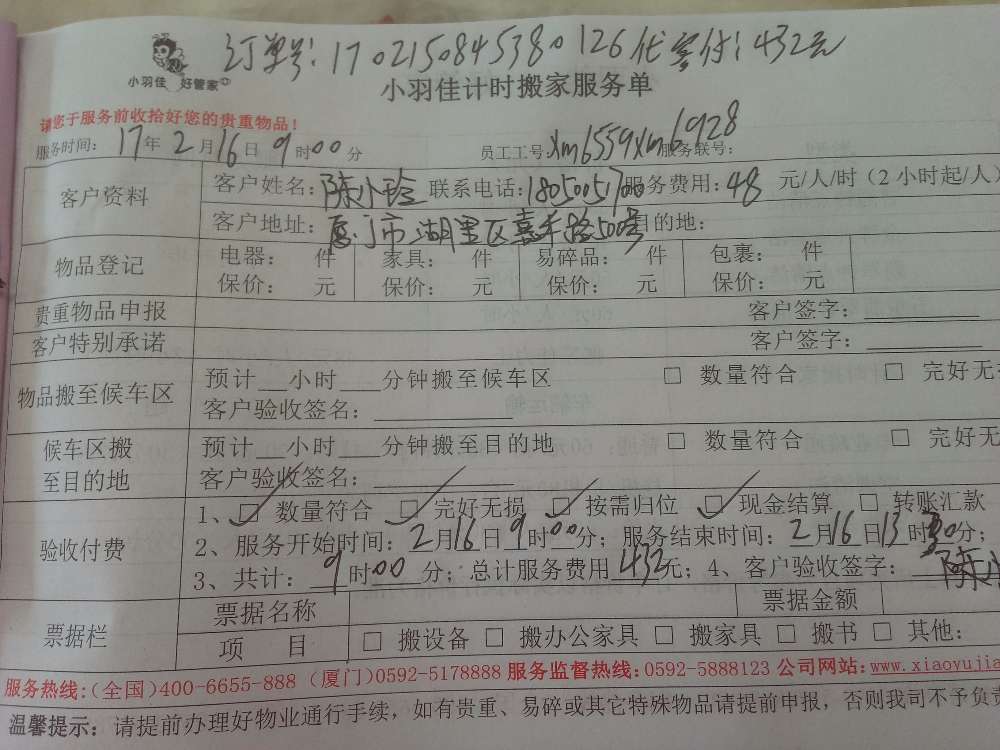 订单号:1702150845380126代客付:432元
小羽佳 好管家
小羽佳计时搬家服务单
请您于服务前收拾好您的贵重物品!
服务时间: 17年 2月16日 9时00分 员工工号:xm6559xm6928 服务联号:
客户资料 客户姓名:陈小玲 联系电话: 服务费用:48 元/人/时(2小时起/人)
客户地址:厦门市湖里区嘉禾路500号 目的地:
物品登记 电器: 件 家具: 件 易碎品: 件 包裹: 件
保价: 元 保价: 元 保价: 元 保价: 元
贵重物品申报 客户签字:
客户特别承诺 客户签字:
物品搬至候车区 预计__小时___分钟搬至候车区 □ 数量符合 □ 完好无
客户验收签名:
候车区搬至目的地 预计__小时___分钟搬至目的地 □ 数量符合 □ 完好无
客户验收签名:
验收付费 1、☑ 数量符合 ☑ 完好无损 ☑ 按需归位 ☑ 现金结算 □ 转账汇款
2、服务开始时间:2月16日9时00分;服务结束时间:2月16日13时30分;
3、共计:9时00分;总计服务费用432元;4、客户验收签字:陈小
票据栏 票据名称 票据金额
项 目 □ 搬设备 □ 搬办公家具 □ 搬家具 □ 搬书 □ 其他:
服务热线:(全国)400-6655-888 (厦门)0592-5178888 服务监督热线:0592-5888123 公司网站:www.xiaoyujia
温馨提示:请提前办理好物业通行手续,如有贵重、易碎或其它特殊物品请提前申报,否则我司不予负责